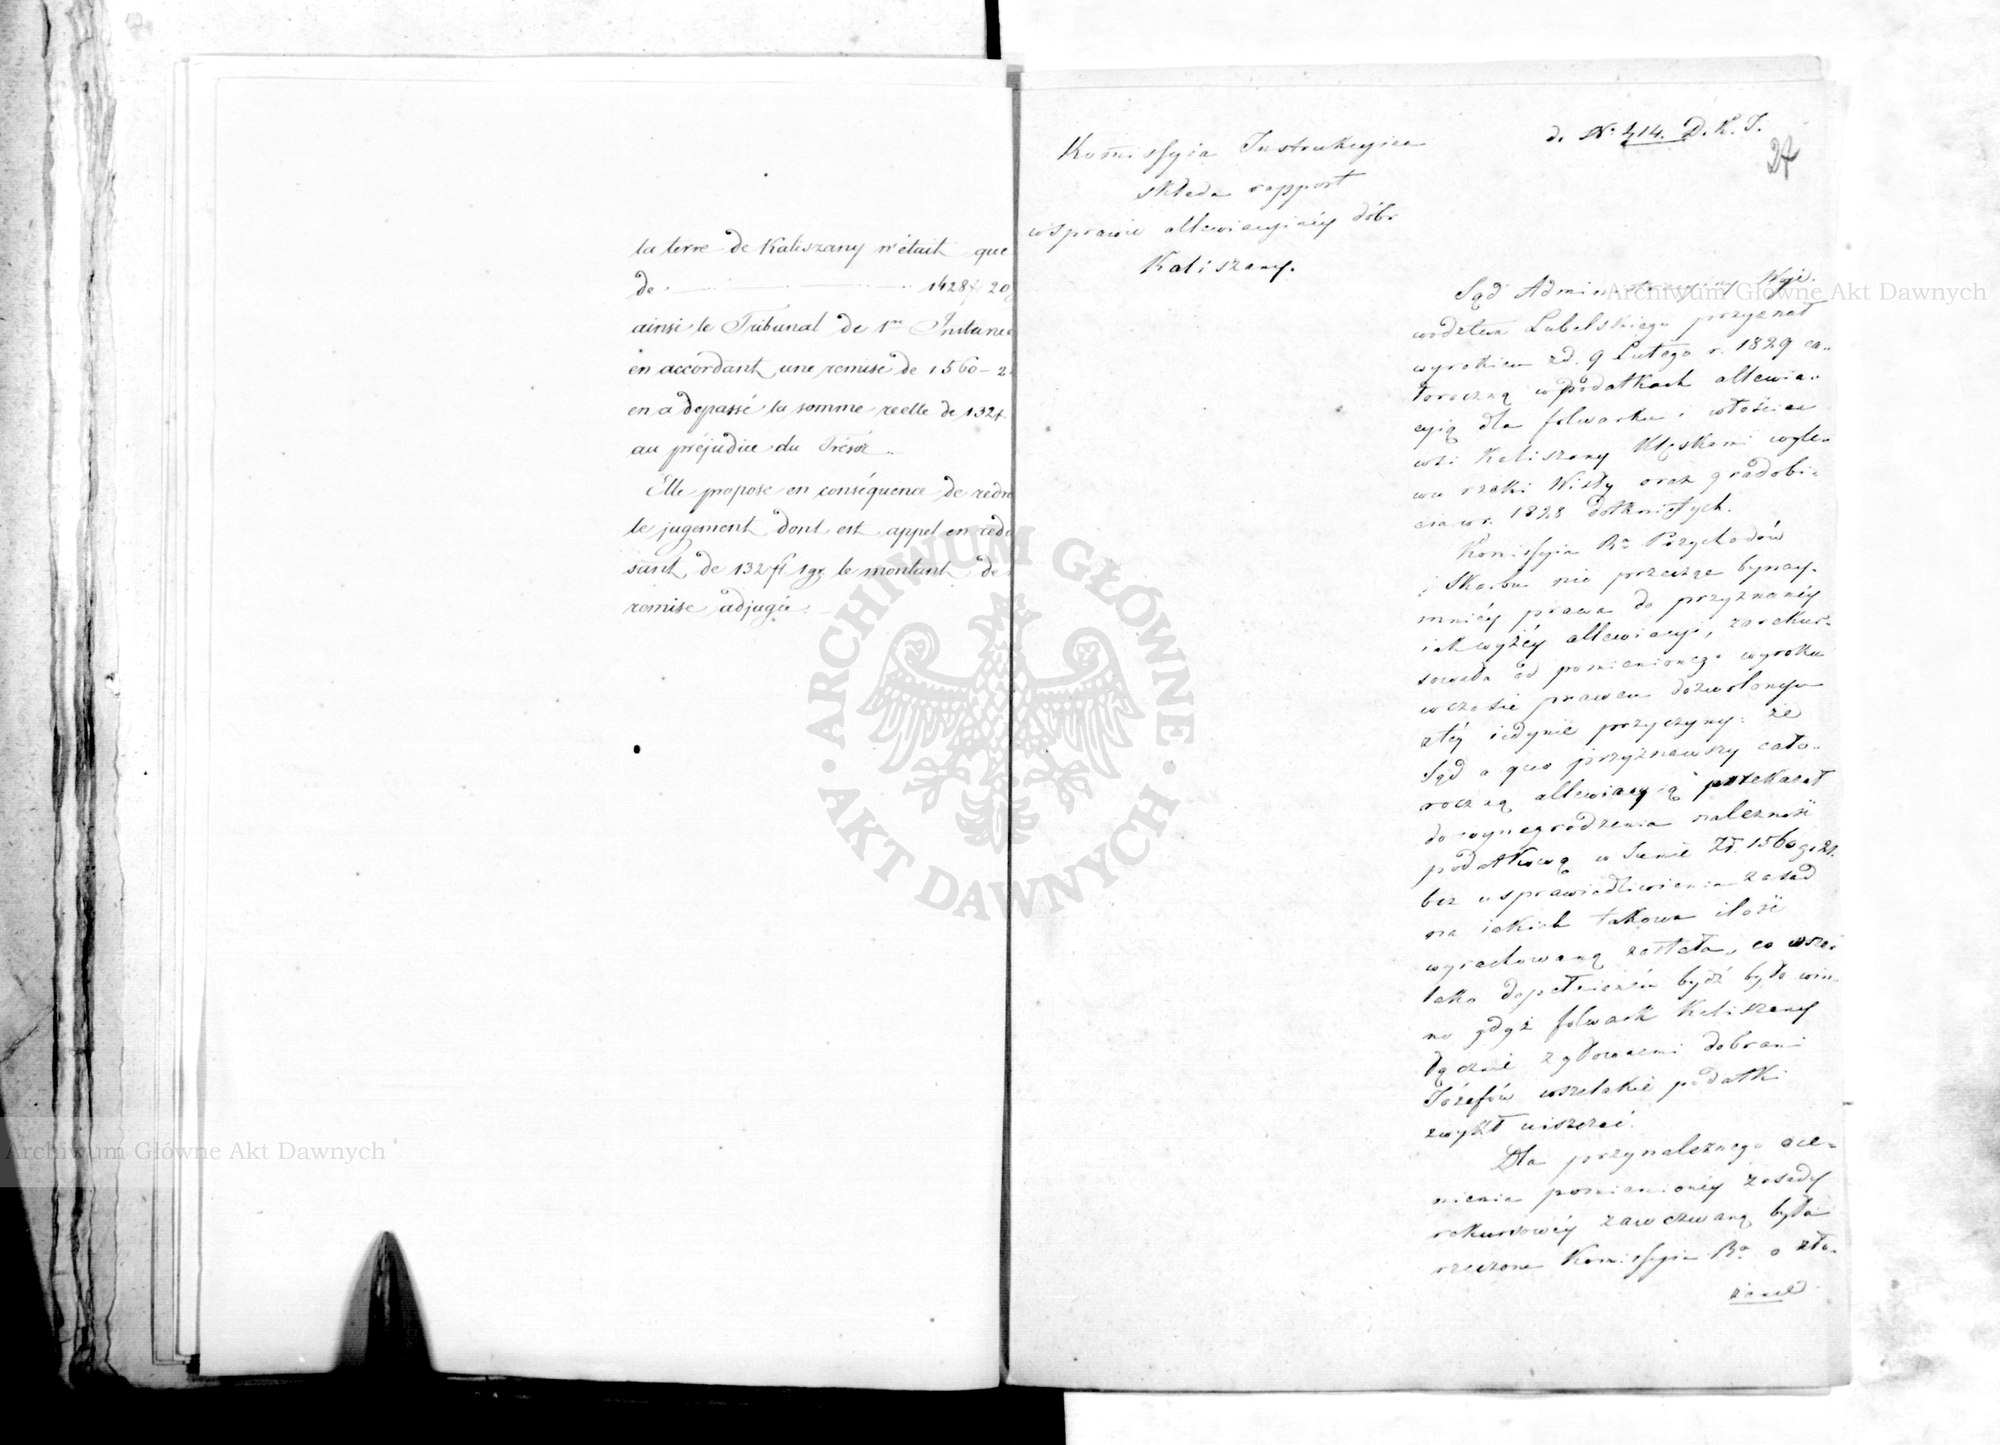 la terre de Kaliszany n'était que
de 1428 f 20
ainsi le Tribunal de 1re Instance
en accordant une remise de 1560 - 2
en a dépassé la somme réelle de 132 f.
au préjudice du Trésor.
Elle propose en conséquence de redre
le jugement dont est appel en rédu
isant de 132 fl 1 gr le montant de
remise adjugée.
d. N° 414. D. K. I.
27
Kom̄issyia Instrukcyina
składa rapport
w sprawie allewiacyinéy dóbr
Kaliszany.
Sąd Administracyiny Woje-
wodztwa Lubelskiego przyznał
wyrokiem z d. 9 Lutego r. 1829 ca-
łoroczną w podatkach allewia-
cyią dla folwarku i włościan
wsi Kaliszany klęskami wyle-
wu rzeki Wisły oraz gradobi-
cia w r. 1828 dotkniętych.
Komissyia Rwa Przychodów
i Skarbu nie przecząc bynay-
mniéy prawa do przyznanéy
iak wyżéy allewiacyi, zarekur-
sowała od pomienionego wyroku
w czasie prawem dozwolonym
z téy iedynie przyczyny: że
Sąd a quo przyznawszy cało-
roczną allewiacyią przekazał
do wynagrodzenia należność
podatkową w Sumie Zł. 1560 g. 21.
bez usprawiedliwienia zasad
na iakich takowa ilość
wyrachowaną została, co wsze-
lako dopełnioném bydź było win-
no gdyż folwark Kaliszany
łącznie z głównemi dobrami
Józefów wszelakie podatki
zwykł uiszczać.
Dla przynależnego oce-
nienia pomienionéy zasady
rekursowéy zawezwaną była
rzeczona Komissyia Rwa o zło-
żenie
Archiwum Główne Akt Dawnych
Archiwum Główne Akt Dawnych
ARCHIWUM GŁÓWNE
AKT DAWNYCH